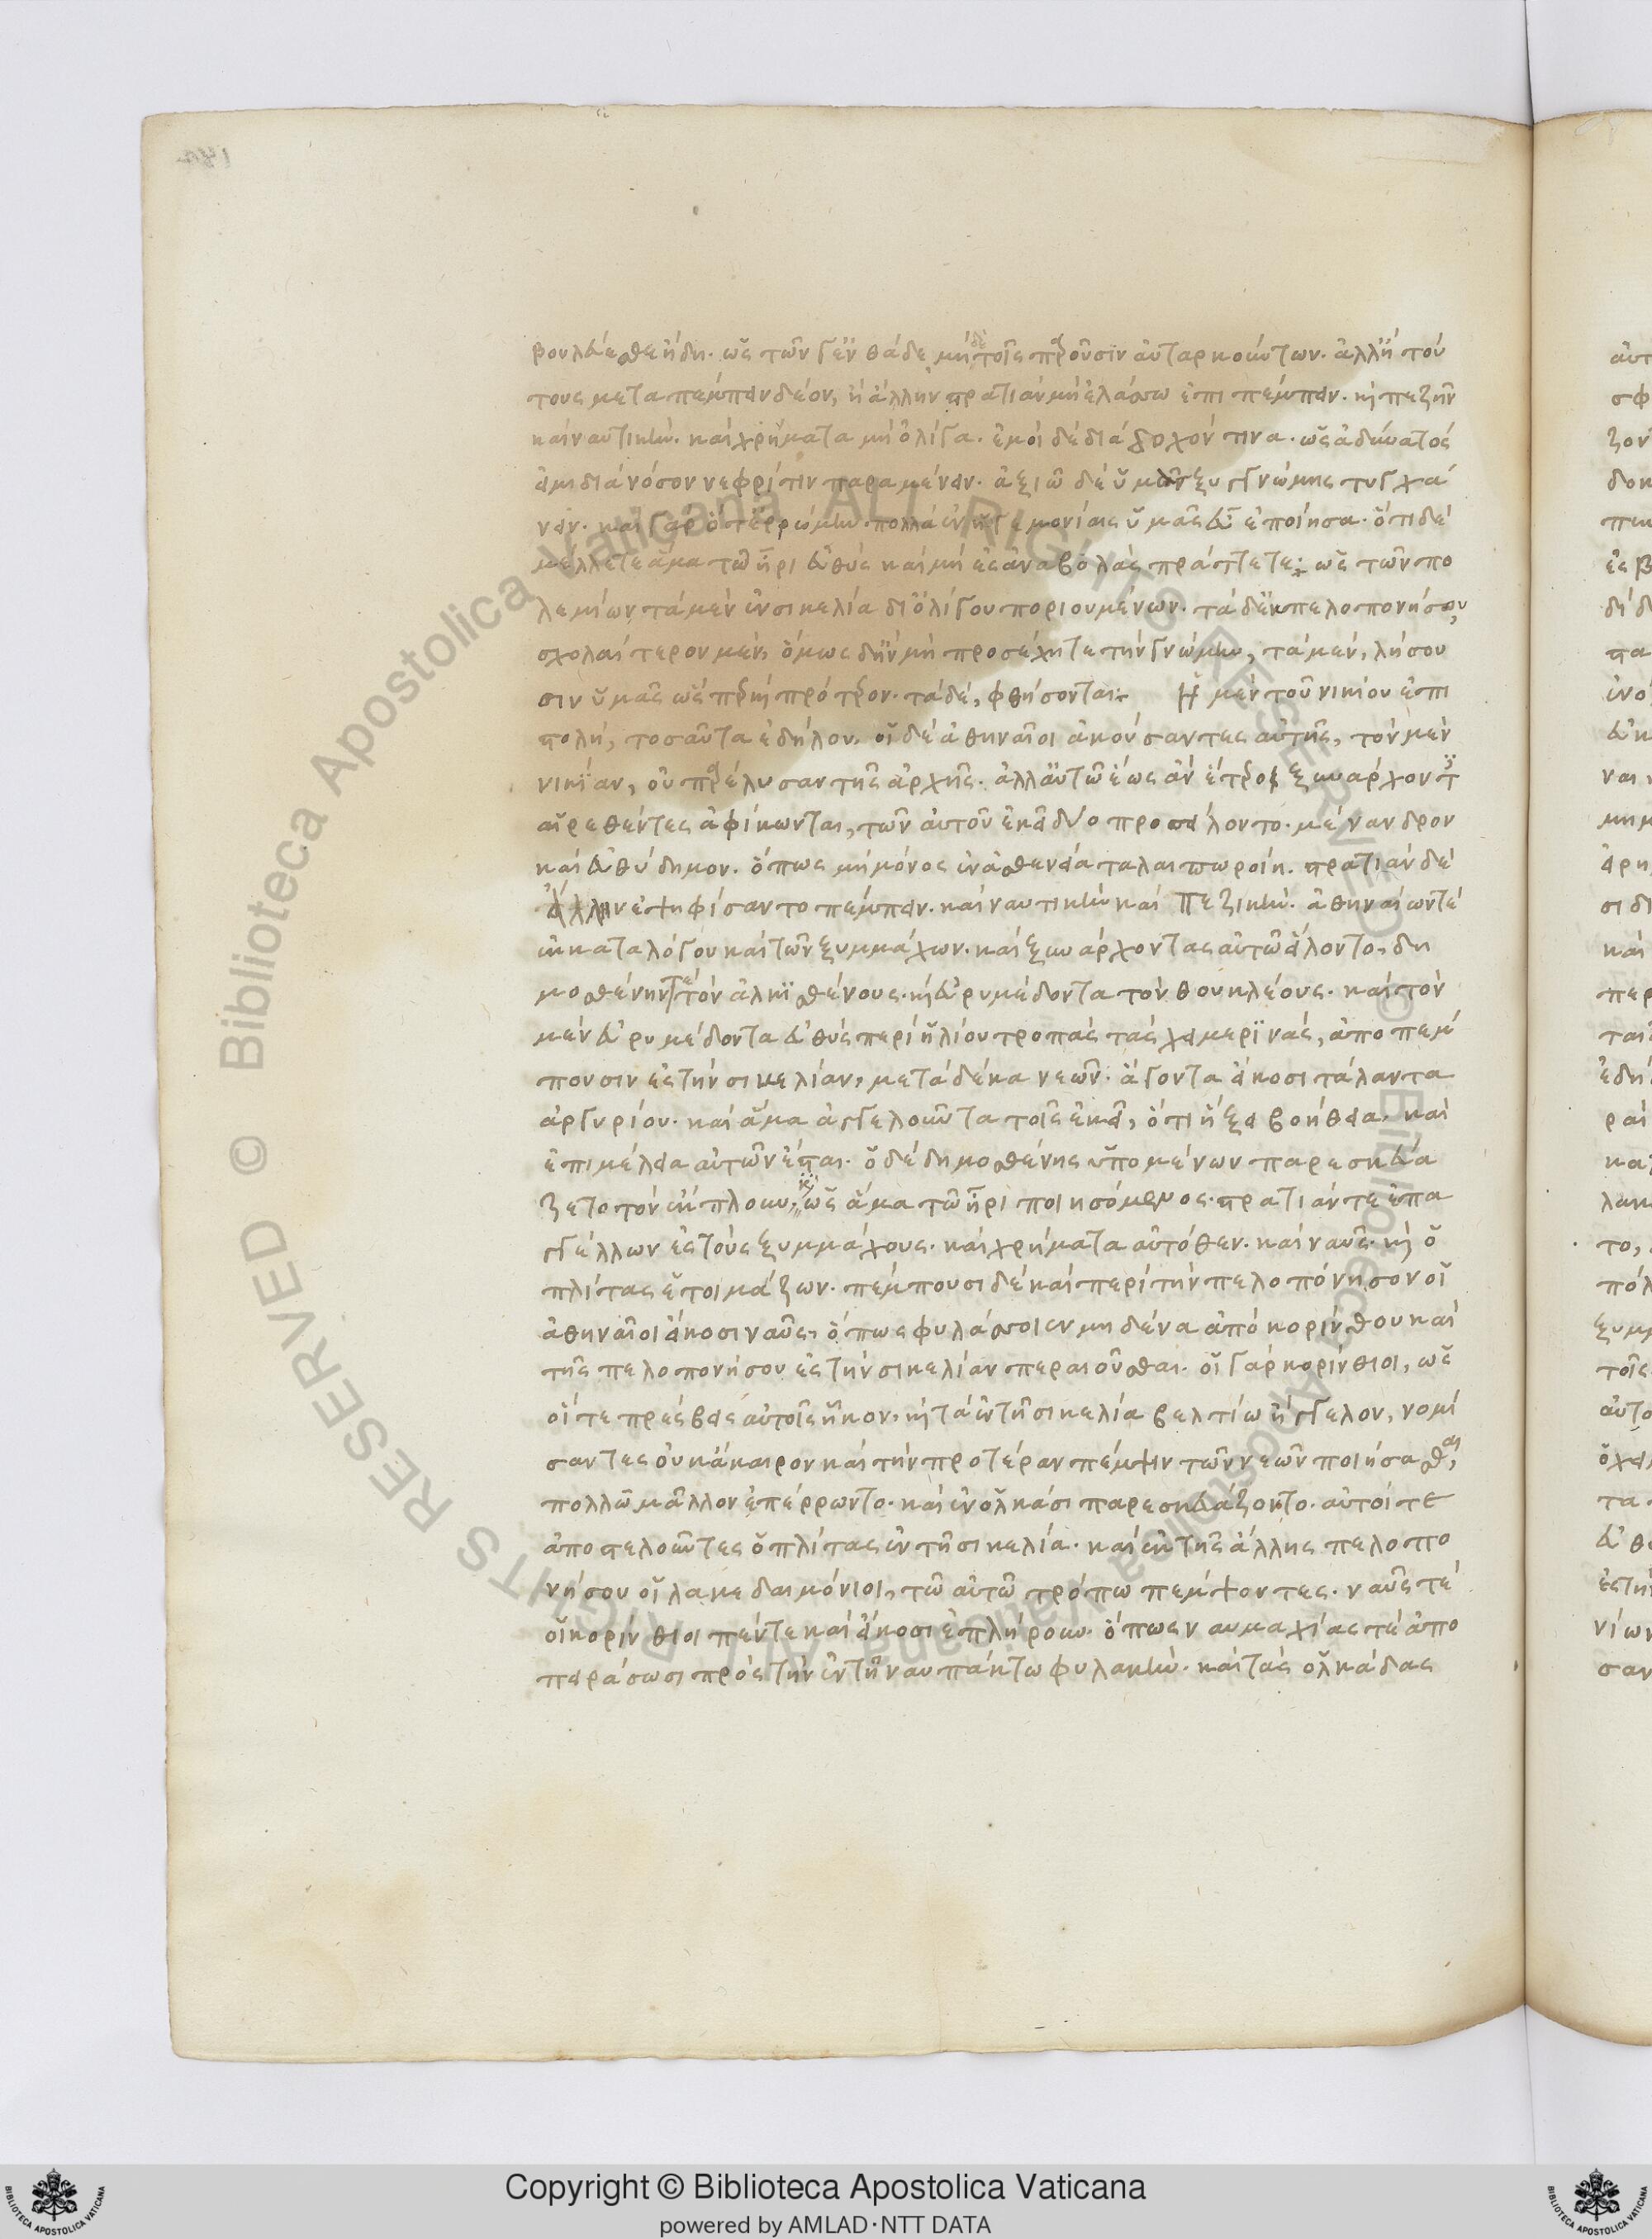 βουλεύεσθε ἤδη. ὡς τῶν γ ἐνθάδε μηδὲ τοῖς παροῦσιν ἀνταρκούντων. ἀλλ ἢ τού
τους μεταπέμπειν δέον, ἢ ἄλλην στρατιὰν μὴ ἐλάσσω ἐπιπέμπειν. καὶ πεζὴν
καὶ ναυτικὴν. καὶ χρήματα μὴ ὀλίγα. ἐμοὶ δὲ διάδοχόν τινα. ὡς ἀδύνατός
εἰμι διὰ νόσον νεφρίτιν παραμένειν. ἀξιῶ δὲ ὑμῶν ξυγγνώμης τυγχά
νειν. καὶ γὰρ ὅτ ἐρρώμην. πολλὰ ἐν ἡγεμονίαις ὑμᾶς εὖ ἐποίησα. ὅτι δὲ
μέλλετε ἅμα τῶ ἦρι εὐθὺς καὶ μὴ ἐς ἀναβολὰς πράττετε: ὡς τῶν πο
λεμίων τὰ μὲν ἐν σικελία δι ὀλίγου ποριουμένων. τὰ δ ἐκ πελοπονήσου,
σχολαίτερον μέν, ὅμως δ ἢν μὴ προσέχητε τὴν γνώμην, τὰ μέν, λήσου
σιν ὑμᾶς ὥσπερ καὶ πρότερον. τὰ δέ, φθήσονται: Ἡ μὲν τοῦ νικίου ἐπι
στολή, τοσαῦτα ἐδήλου. οἱ δὲ ἀθηναῖοι ἀκούσαντες αὐτῆς, τὸν μὲν
νικίαν, οὐ παρέλυσαν τῆς ἀρχῆς. ἀλλ αὐτῶ ἕως ἂν ἕτεροι ξυνάρχοντες
αἱρεθέντες ἀφίκωνται, τῶν αὐτοῦ ἐκεῖ δύο προσείλοντο. μένανδρον
καὶ εὐθύδημον. ὅπως μὴ μόνος ἐν ἀσθενεία ταλαιπωροίη. στρατιὰν δὲ
ἄλλην ἐψηφίσαντο πέμπειν. καὶ ναυτικὴν καὶ πεζικὴν. ἀθηναίων τὲ
ἐκ καταλόγου καὶ τῶν ξυμμάχων. καὶ ξυνάρχοντας αὐτῶ εἵλοντο, δη
μοσθένην τὲ τὸν ἀλκισθένους. καὶ εὐρυμέδοντα τὸν θουκλέους. καὶ τὸν
μὲν εὐρυμέδοντα εὐθὺς περὶ ἡλίου τροπὰς τὰς χειμερινὰς, ἀποπέμ
πουσιν ἐς τὴν σικελίαν, μετὰ δέκα νεῶν. ἄγοντα εἴκοσι τάλαντα
ἀργυρίου. καὶ ἅμα ἀγγελοῦντα τοῖς ἐκεῖ, ὅτι ἥξει βοήθεια. καὶ
ἐπιμέλεια αὐτῶν ἔσται. ὁ δὲ δημοσθένης ὑπομένων παρεσκευά
ζετο τὸν ἔκπλουν. ὡς ἅμα τῶ ἦρι ποιησόμενος. στρατιάν τε ἐπα
γγέλλων ἐς τοὺς ξυμμάχους. καὶ χρήματα αὐτόθεν. καὶ ναῦς. καὶ ὁ
πλίτας ἑτοιμάζων. πέμπουσι δὲ καὶ περὶ τὴν πελοπόνησον οἱ
ἀθηναῖοι εἴκοσι ναῦς, ὅπως φυλάσσοιεν μηδένα ἀπὸ κορίνθου καὶ
τῆς πελοπονήσου ἐς τὴν σικελίαν περαιοῦσθαι. οἱ γὰρ κορίνθιοι, ὡς
οἵ τε πρέσβεις αὐτοῖς ἧκον, καὶ τὰ ἐν τῆ σικελία βελτίω ἤγγελον, νομί
σαντες οὐκ ἄκαιρον καὶ τὴν προτέραν πέμψιν τῶν νεῶν ποιήσασθαι,
πολλῶ μᾶλλον ἐπέρρωντο. καὶ ἐν ὁλκάσι παρεσκευάζοντο. αὐτοί τε
ἀποστελοῦντες ὁπλίτας ἐν τῆ σικελία. καὶ ἐκ τῆς ἄλλης πελοπο
νήσου οἱ λακεδαιμόνιοι, τῶ αὐτῶ τρόπω πέμψοντες. ναῦς τὲ
οἱ κορίνθιοι πέντε καὶ εἴκοσι ἐπλήρουν. ὅπως ναυμαχίας τὲ ἀπο
πειράσωσι πρὸς τὴν ἐν τῆ ναυπάκτω φυλακὴν. καὶ τὰς ὁλκάδας
© Biblioteca Apostolica Vaticana ALL RIGHTS RESERVED
Copyright © Biblioteca Apostolica Vaticana
powered by AMLAD·NTT DATA